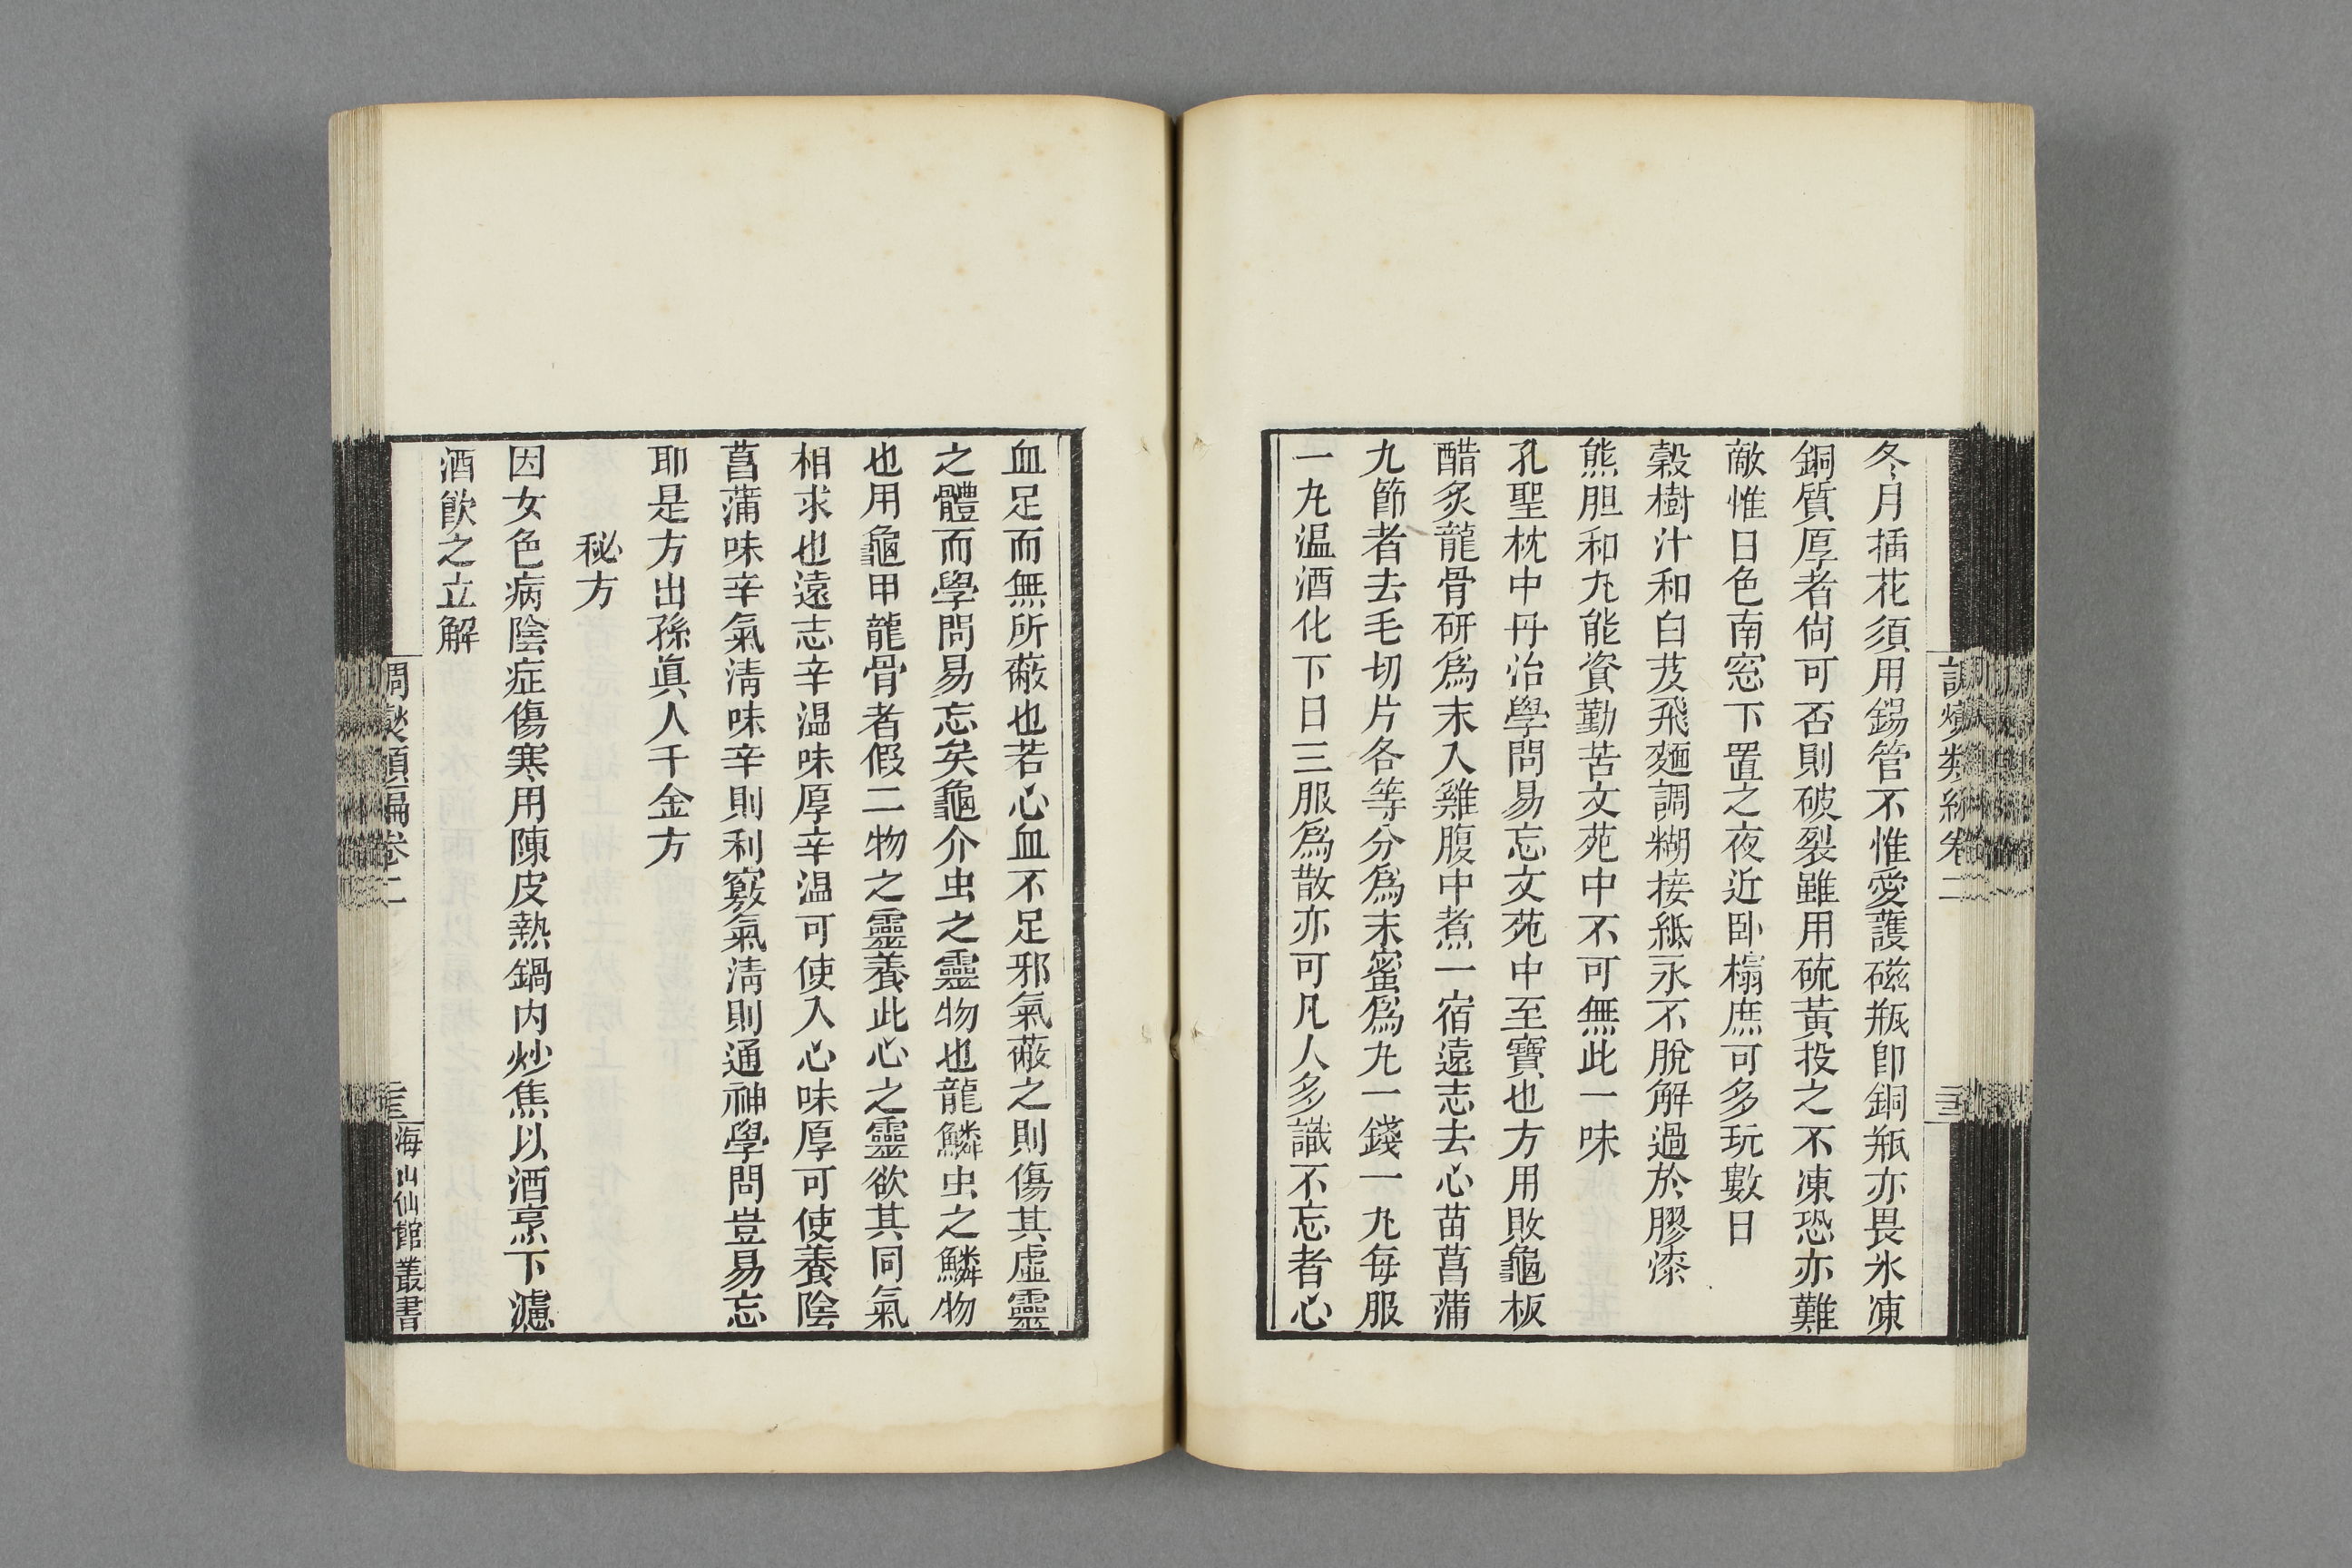 冬月插花須用錫管不惟愛護磁瓶卽銅瓶亦畏氷凍
銅質厚者尙可否則破裂雖用硫黃投之不凍恐亦難
敵惟日色南窓下置之夜近卧榻庶可多玩數日
糓樹汁和白芨飛麵調糊接紙永不脫解過於膠漆
熊胆和丸能資勤苦文苑中不可無此一味
孔聖枕中丹治學問易忘文苑中至寶也方用敗龜板
醋炙龍骨研爲末入雞腹中煮一宿遠志去心苗菖蒲
九節者去毛切片各等分爲末蜜爲丸一錢一丸每服
一丸温酒化下日三服爲散亦可凡人多識不忘者心
血足而無所蔽也若心血不足邪氣蔽之則傷其虛靈
之體而學問易忘矣龜介虫之靈物也龍鱗虫之鱗物
也用龜甲龍骨者假二物之靈養此心之靈欲其同氣
相求也遠志辛温味厚辛温可使入心味厚可使養陰
菖蒲味辛氣淸味辛則利竅氣淸則通神學問豈易忘
耶是方出孫眞人千金方
秘方
因女色病陰症傷寒用陳皮熱鍋内炒焦以酒烹下濾
酒飮之立解
調燮類編卷二
海山仙館叢書